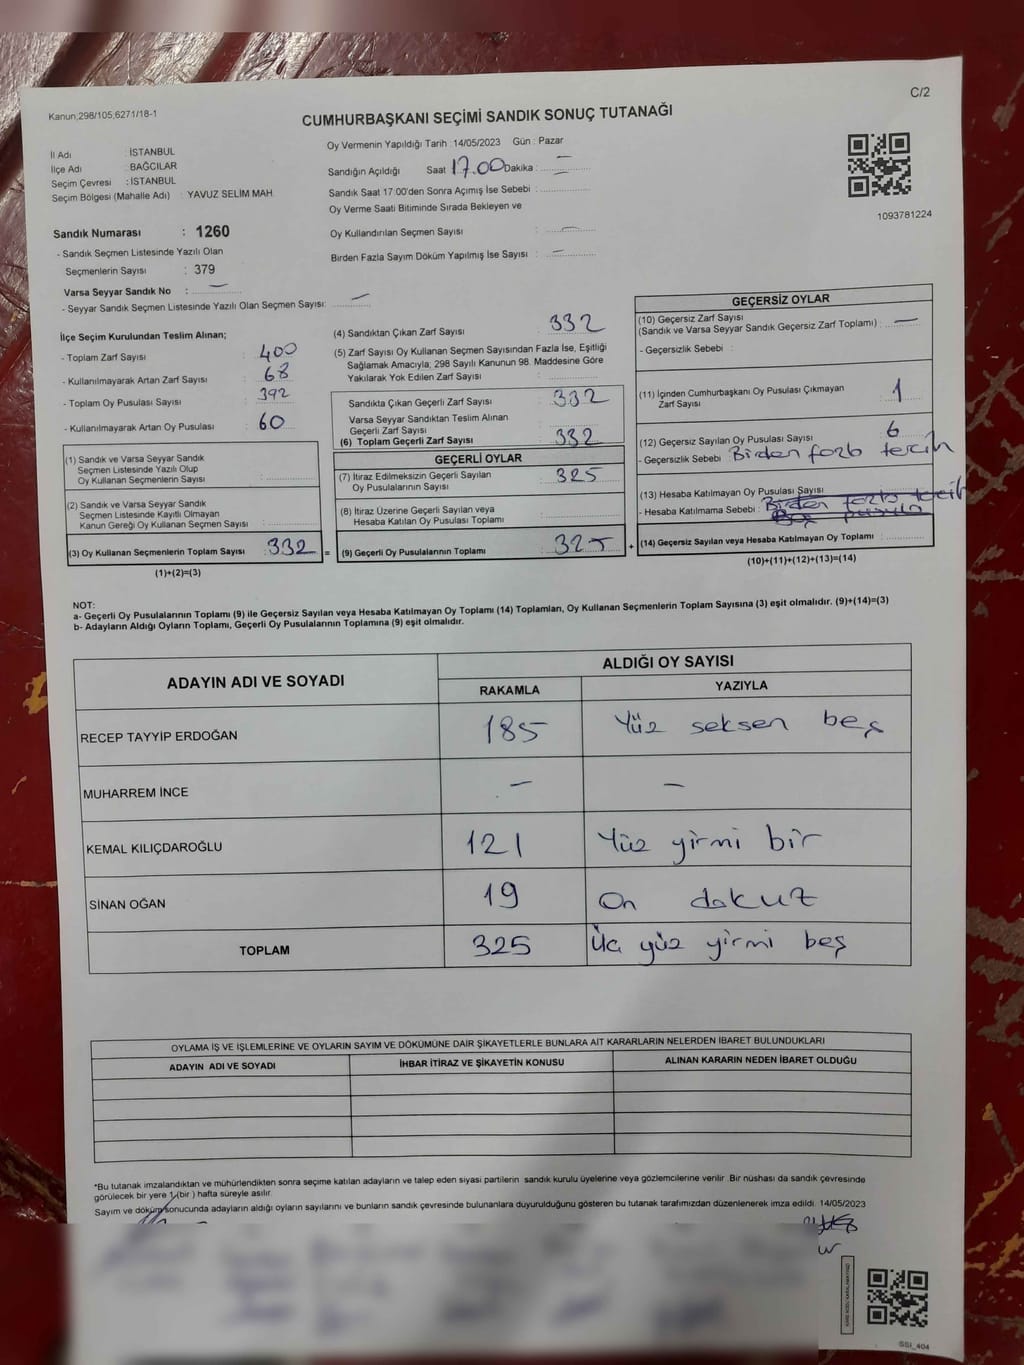 C/2
Kanun,298/105,6271/18-1
CUMHURBAŞKANI SEÇİMİ SANDIK SONUÇ TUTANAĞI
İl Adı : İSTANBUL
İlçe Adı : BAĞCILAR
Seçim Çevresi : İSTANBUL
Seçim Bölgesi (Mahalle Adı) : YAVUZ SELİM MAH.
Sandık Numarası : 1260
- Sandık Seçmen Listesinde Yazılı Olan
Seçmenlerin Sayısı : 379
Varsa Seyyar Sandık No : –
- Seyyar Sandık Seçmen Listesinde Yazılı Olan Seçmen Sayısı: –
Oy Vermenin Yapıldığı Tarih :14/05/2023 Gün : Pazar
Sandığın Açıldığı Saat 17.00 Dakika : –
Sandık Saat 17:00'den Sonra Açımış İse Sebebi :
Oy Verme Saati Bitiminde Sırada Bekleyen ve
Oy Kullandırılan Seçmen Sayısı : –
Birden Fazla Sayım Döküm Yapılmış İse Sayısı : –
1093781224
İlçe Seçim Kurulundan Teslim Alınan;
- Toplam Zarf Sayısı : 400
- Kullanılmayarak Artan Zarf Sayısı : 68
- Toplam Oy Pusulası Sayısı : 392
- Kullanılmayarak Artan Oy Pusulası : 60
(1) Sandık ve Varsa Seyyar Sandık
Seçmen Listesinde Yazılı Olup
Oy Kullanan Seçmenlerin Sayısı :
(2) Sandık ve Varsa Seyyar Sandık
Seçmen Listesinde Kayıtlı Olmayan
Kanun Gereği Oy Kullanan Seçmen Sayısı :
(3) Oy Kullanan Seçmenlerin Toplam Sayısı : 332 =
(1)+(2)=(3)
(4) Sandıktan Çıkan Zarf Sayısı : 332
(5) Zarf Sayısı Oy Kullanan Seçmen Sayısından Fazla İse, Eşitliği
Sağlamak Amacıyla; 298 Sayılı Kanunun 98. Maddesine Göre
Yakılarak Yok Edilen Zarf Sayısı :
Sandıkta Çıkan Geçerli Zarf Sayısı : 332
Varsa Seyyar Sandıktan Teslim Alınan
Geçerli Zarf Sayısı :
(6) Toplam Geçerli Zarf Sayısı : 332
GEÇERLİ OYLAR
(7) İtiraz Edilmeksizin Geçerli Sayılan
Oy Pusulalarının Sayısı : 325
(8) İtiraz Üzerine Geçerli Sayılan veya
Hesaba Katılan Oy Pusulası Toplamı :
(9) Geçerli Oy Pusulalarının Toplamı : 325 +
GEÇERSİZ OYLAR
(10) Geçersiz Zarf Sayısı
(Sandık ve Varsa Seyyar Sandık Geçersiz Zarf Toplamı) : –
- Geçersizlik Sebebi :
(11) İçinden Cumhurbaşkanı Oy Pusulası Çıkmayan
Zarf Sayısı : 1
(12) Geçersiz Sayılan Oy Pusulası Sayısı : 6
- Geçersizlik Sebebi : Birden fazla tercih
(13) Hesaba Katılmayan Oy Pusulası Sayısı :
- Hesaba Katılmama Sebebi : Birden fazla tercih
Boş pusula
(14) Geçersiz Sayılan veya Hesaba Katılmayan Oy Toplamı :
(10)+(11)+(12)+(13)=(14)
NOT:
a- Geçerli Oy Pusulalarının Toplamı (9) ile Geçersiz Sayılan veya Hesaba Katılmayan Oy Toplamı (14) Toplamları, Oy Kullanan Seçmenlerin Toplam Sayısına (3) eşit olmalıdır. (9)+(14)=(3)
b- Adayların Aldığı Oyların Toplamı, Geçerli Oy Pusulalarının Toplamına (9) eşit olmalıdır.
ADAYIN ADI VE SOYADI
ALDIĞI OY SAYISI
RAKAMLA YAZIYLA
RECEP TAYYİP ERDOĞAN 185 Yüz seksen beş
MUHARREM İNCE – –
KEMAL KILIÇDAROĞLU 121 Yüz yirmi bir
SİNAN OĞAN 19 On dokuz
TOPLAM 325 Üç yüz yirmi beş
OYLAMA İŞ VE İŞLEMLERİNE VE OYLARIN SAYIM VE DÖKÜMÜNE DAİR ŞİKAYETLERLE BUNLARA AİT KARARLARIN NELERDEN İBARET BULUNDUKLARI
ADAYIN ADI VE SOYADI İHBAR İTİRAZ VE ŞİKAYETİN KONUSU ALINAN KARARIN NEDEN İBARET OLDUĞU
*Bu tutanak imzalandıktan ve mühürlendikten sonra seçime katılan adayların ve talep eden siyasi partilerin sandık kurulu üyelerine veya gözlemcilerine verilir. Bir nüshası da sandık çevresinde
görülecek bir yere 1 (bir ) hafta süreyle asılır.
Sayım ve döküm sonucunda adayların aldığı oyların sayılarını ve bunların sandık çevresinde bulunanlara duyurulduğunu gösteren bu tutanak tarafımızdan düzenlenerek imza edildi. 14/05/2023
SSI_404